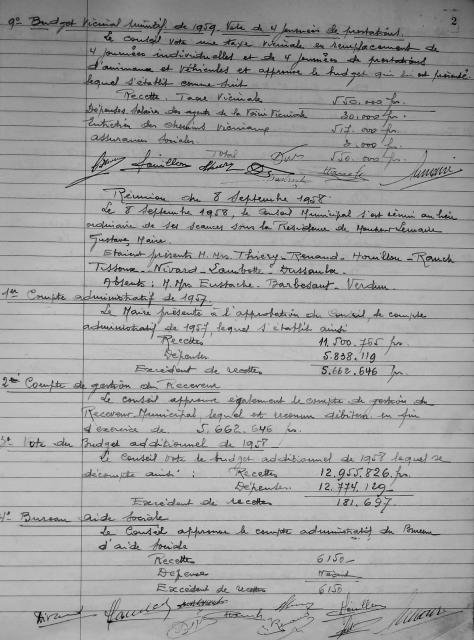 2
9° Budget Vicinal primitif de 1959. Vote de 4 journées de prestations.
Le Conseil vote une taxe vicinale en remplacement de
4 journées individuelles et de 4 journées de prestations
d'animaux et véhicules et approuve le budget qui lui est présenté
lequel s'établit comme suit
Recette. Taxe Vicinale 550.000 frs.
Dépenses. Salaires des agents de la Voirie Vicinale 30.000 frs.
Entretien des Chemins Vicinaux 517.000 frs.
assurances Sociales 3.000 frs.
Total 550.000 frs.
Réunion du 8 Septembre 1958
Le 8 Septembre 1958, le Conseil Municipal s'est réuni au lieu
ordinaire de ses séances sous la Présidence de Monsieur Lemaire
Gustave, Maire.
Etaient présents M. Mrs. Thiéry - Renaud - Houillon - Rauch
Tissoux - Nivard - Lambotte - Dussaulx.
Absents : M. Mrs Eustache - Barbesant - Verdun.
1er Compte administratif de 1957
Le Maire présente à l'approbation du Conseil, le compte
administratif de 1957, lequel s'établit ainsi
Recettes 11.500.765 frs.
Dépenses 5.838.119
Excédent de recettes 5.662.646 frs.
2me Compte de gestion du Receveur
Le conseil approuve également le compte de gestion du
Receveur Municipal, lequel est reconnu débiteur en fin
d'exercice de 5.662.646 frs.
3° Vote du Budget additionnel de 1958
Le Conseil vote le budget additionnel de 1958 lequel se
décompte ainsi : Recettes 12.955.826 frs.
Dépenses 12.774.129
Excédent de recettes 181.697
4° Bureau Aide Sociale
Le Conseil approuve le compte administratif du Bureau
d'aide Sociale
Recettes 6150
Dépenses Néant
Excédent de recettes 6150